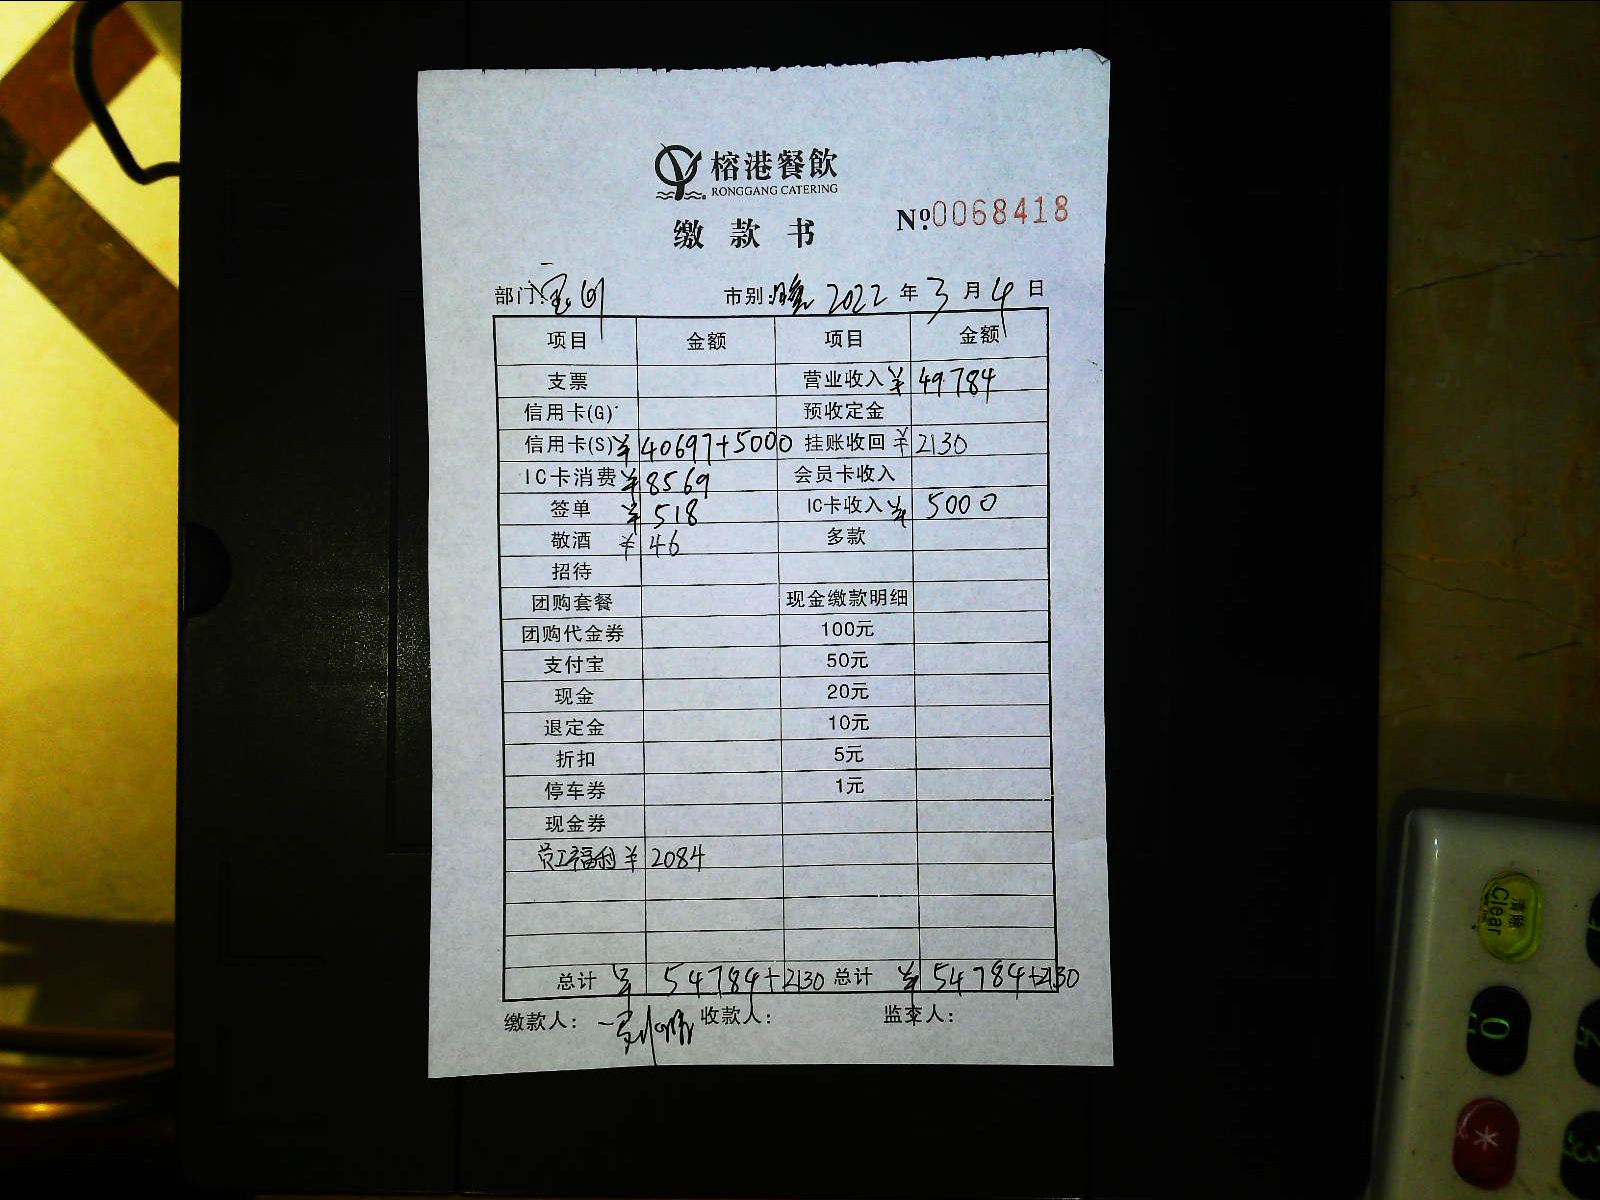 榕港餐飲
RONGGANG CATERING
缴款书
Nº:0068418
部门: 市别: 2022 年 3 月 4 日
项目 金额 项目 金额
支票 营业收入 ¥ 49784
信用卡(G) 预收定金
信用卡(S) ¥ 40697+5000 挂账收回 ¥ 2130
IC卡消费 ¥ 8569 会员卡收入
签单 ¥ 518 IC卡收入 ¥ 5000
敬酒 ¥ 46 多款
招待
团购套餐 现金缴款明细
团购代金券 100元
支付宝 50元
现金 20元
退定金 10元
折扣 5元
停车券 1元
现金券
员工福利 ¥ 2084
总计 ¥ 54784+2130 总计 ¥ 54784+2130
缴款人: 收款人: 监交人:
清除
Clear
0
*